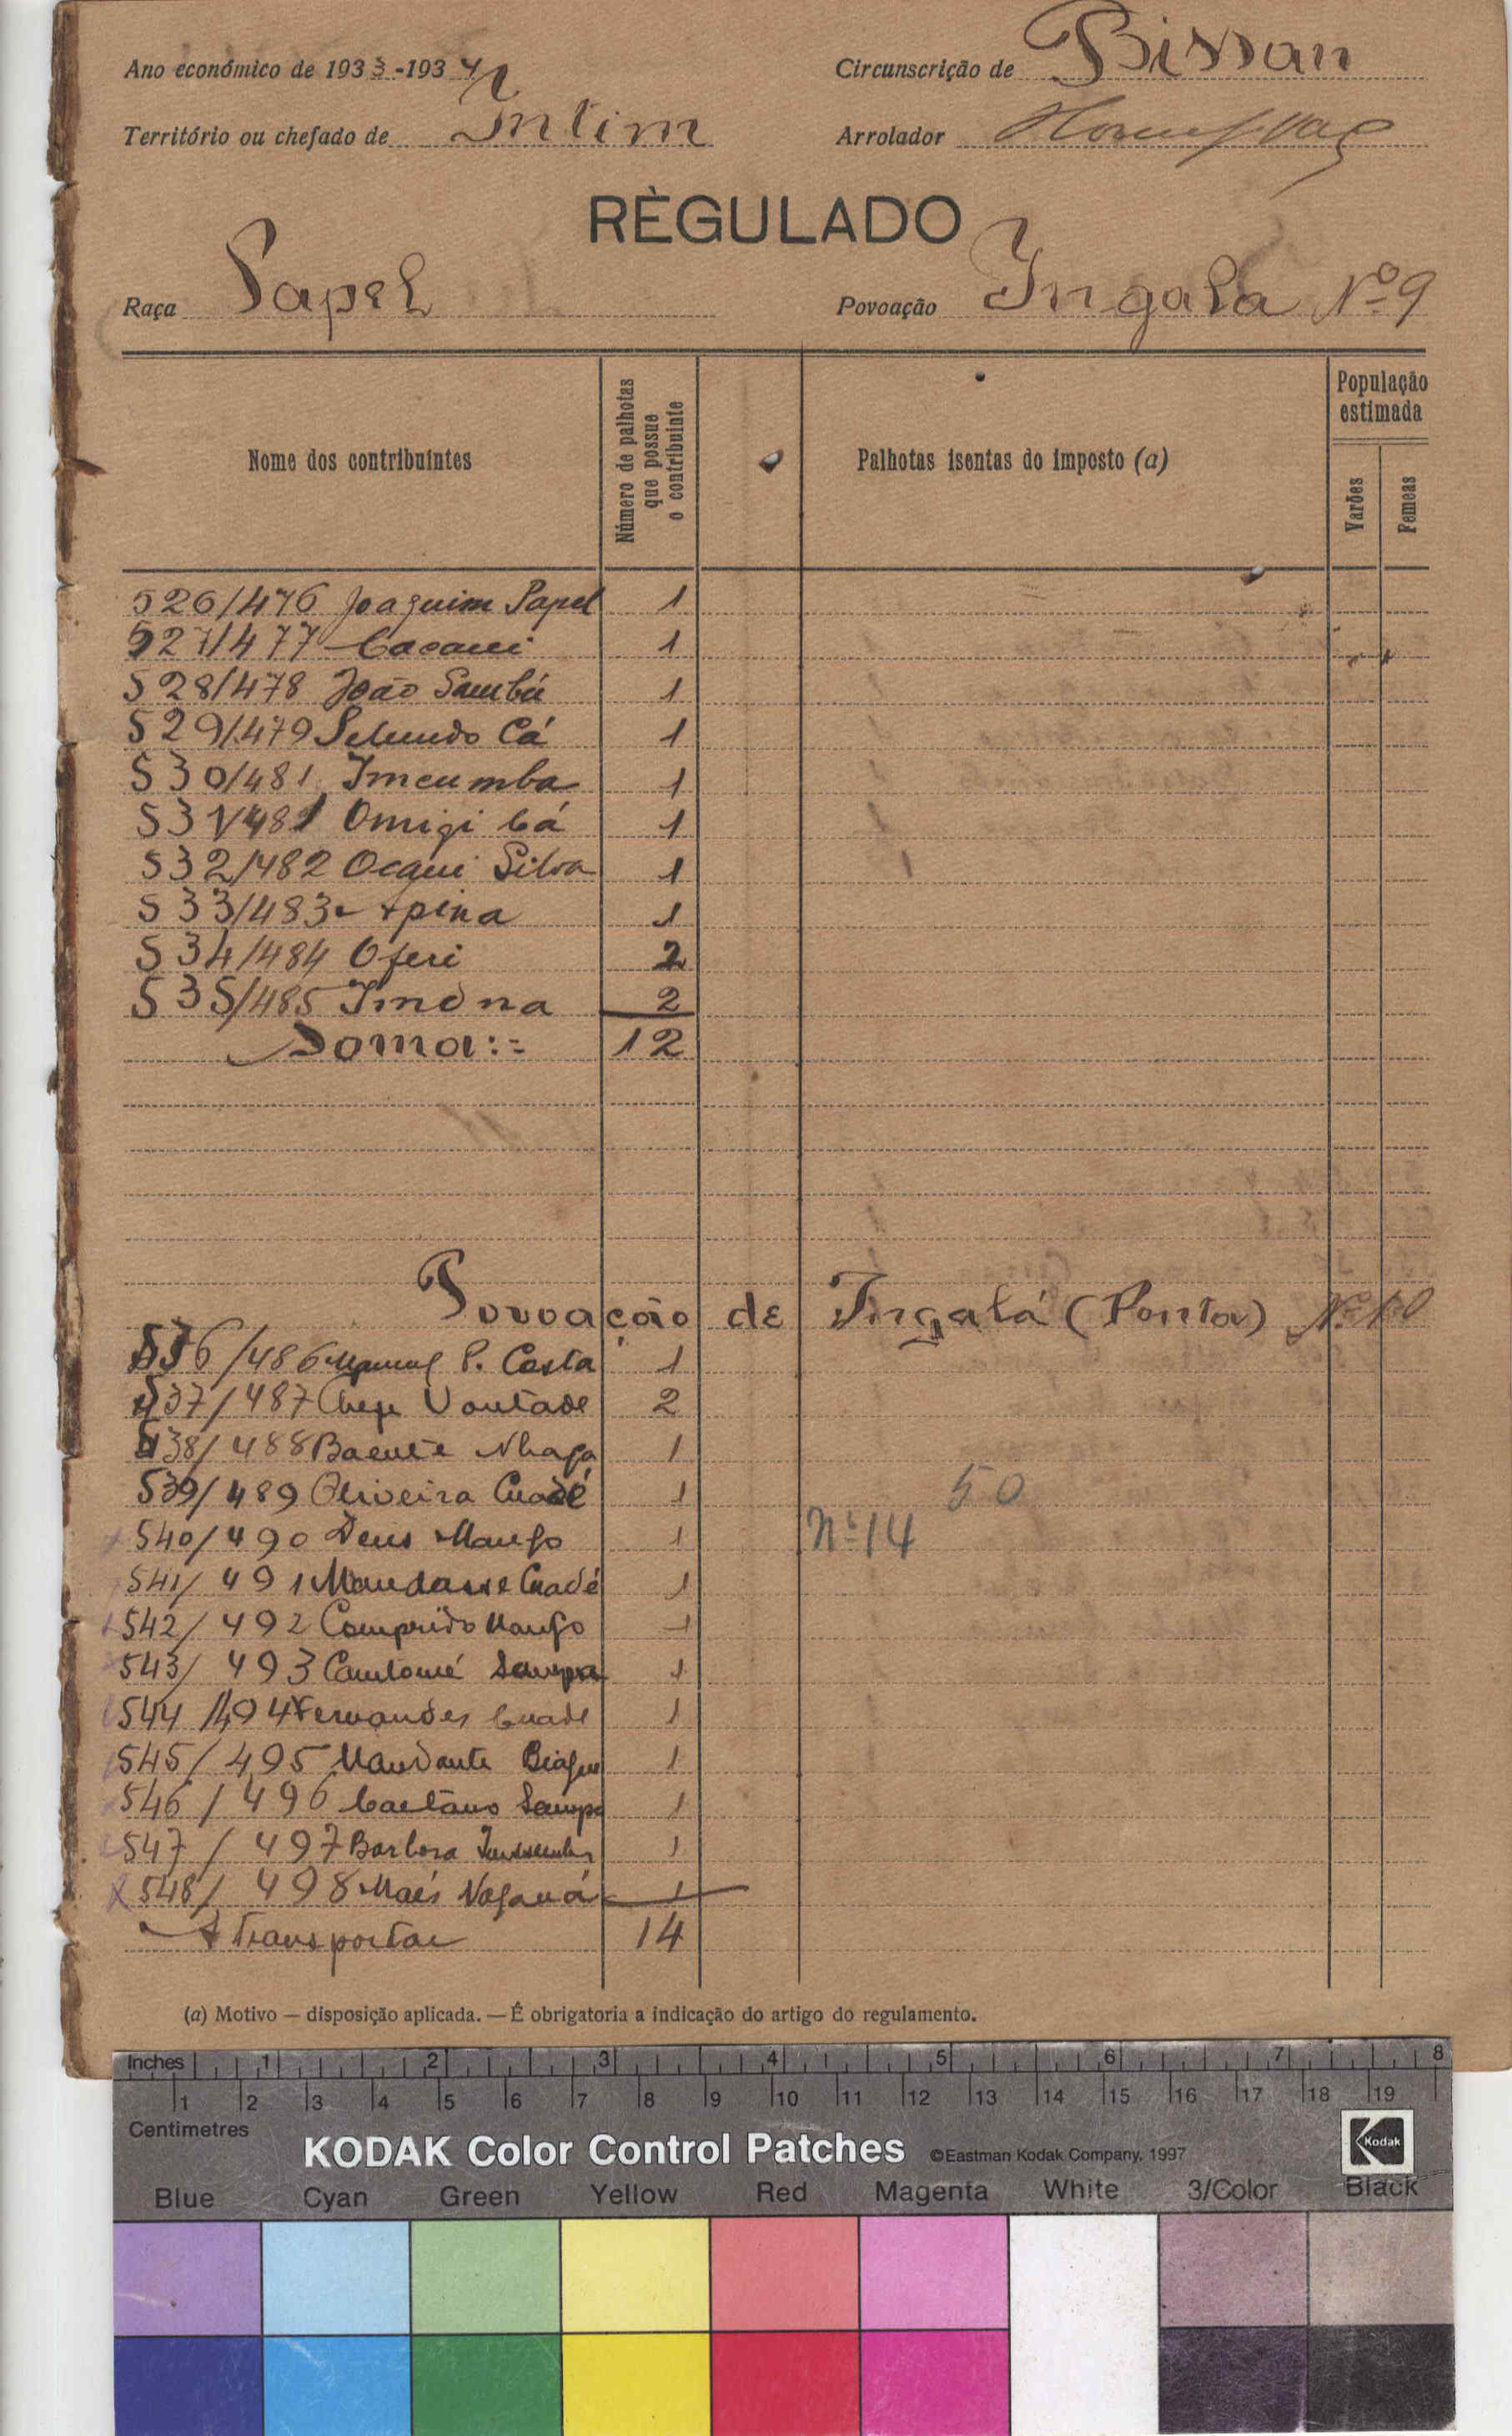 Ano económico de 1933-1934 Circunscrição de Bissau
Território ou chefado de Intim Arrolador
RÈGULADO
Raça Papel Povoação Ingala Nº 9
Nome dos contribuintes Número de palhotas que possue o contribuinte Palhotas isentas do imposto (a) População estimada Varões Femeas
526/476 Joaquim Papel 1
527/477 Cacaui 1
528/478 João Sambú 1
529/479 Segundo Cá 1
530/481 Imcumba 1
531/481 Omigi Cá 1
532/482 Ocqui Silva 1
533/483 pina 1
534/484 Oferi 2
535/485 Imóna 2
Soma:= 12
Povoação de Ingalá (Ponta) Nº 10
536/486 Manuel P. Costa 1
537/487 Chege Vontade 2
538/488 Nhaga 1
539/489 Oliveira Cuadé 1 50
540/490 Deus Manfo 1 Nº 14
541/491 Mandasse Cuadé 1
542/492 Comprido Manfo 1
543/493 Sampa 1
544/494 Fernandes Cuade 1
545/495 Mandante Biague 1
546/496 Caetano Sampa 1
547/497 Barbosa 1
548/498 1
A Transportar 14
(a) Motivo — disposição aplicada. — É obrigatoria a indicação do artigo do regulamento.
Inches 1 2 3 4 5 6 7 8
1 2 3 4 5 6 7 8 9 10 11 12 13 14 15 16 17 18 19
Centimetres
KODAK Color Control Patches ©Eastman Kodak Company, 1997 Kodak
Blue Cyan Green Yellow Red Magenta White 3/Color Black